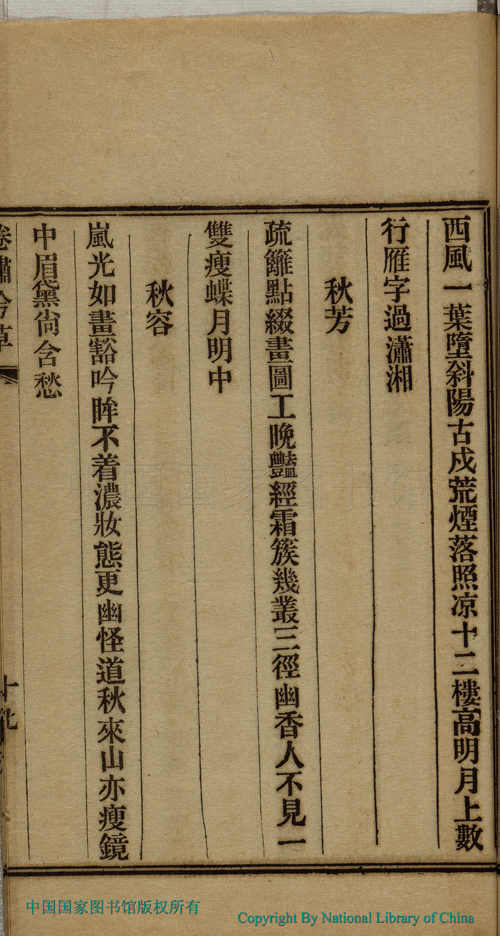 西風一葉墮斜陽古戍荒煙落照凉十二樓高明月上數
行雁字過瀟湘
秋芳
疏籬點綴畫圖工晚豔經霜簇幾叢三徑幽香人不見一
雙瘦蝶月明中
秋容
嵐光如畫豁吟眸不着濃妝態更幽怪道秋來山亦瘦鏡
中眉黛尙含愁
吟草
十九
中国国家图书馆版权所有
Copyright By National Library of China